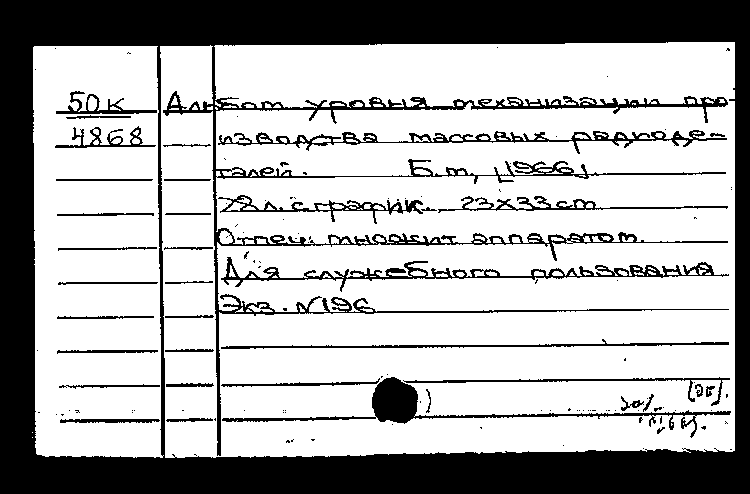 50к Альбом уровня механизации про-
4868 изводства массовых радиоде-
талей. Б.m, [1966].
78л. с график. 23х33cm
Отпеч. множит аппаратом.
Для служебного пользования
Экз. №196